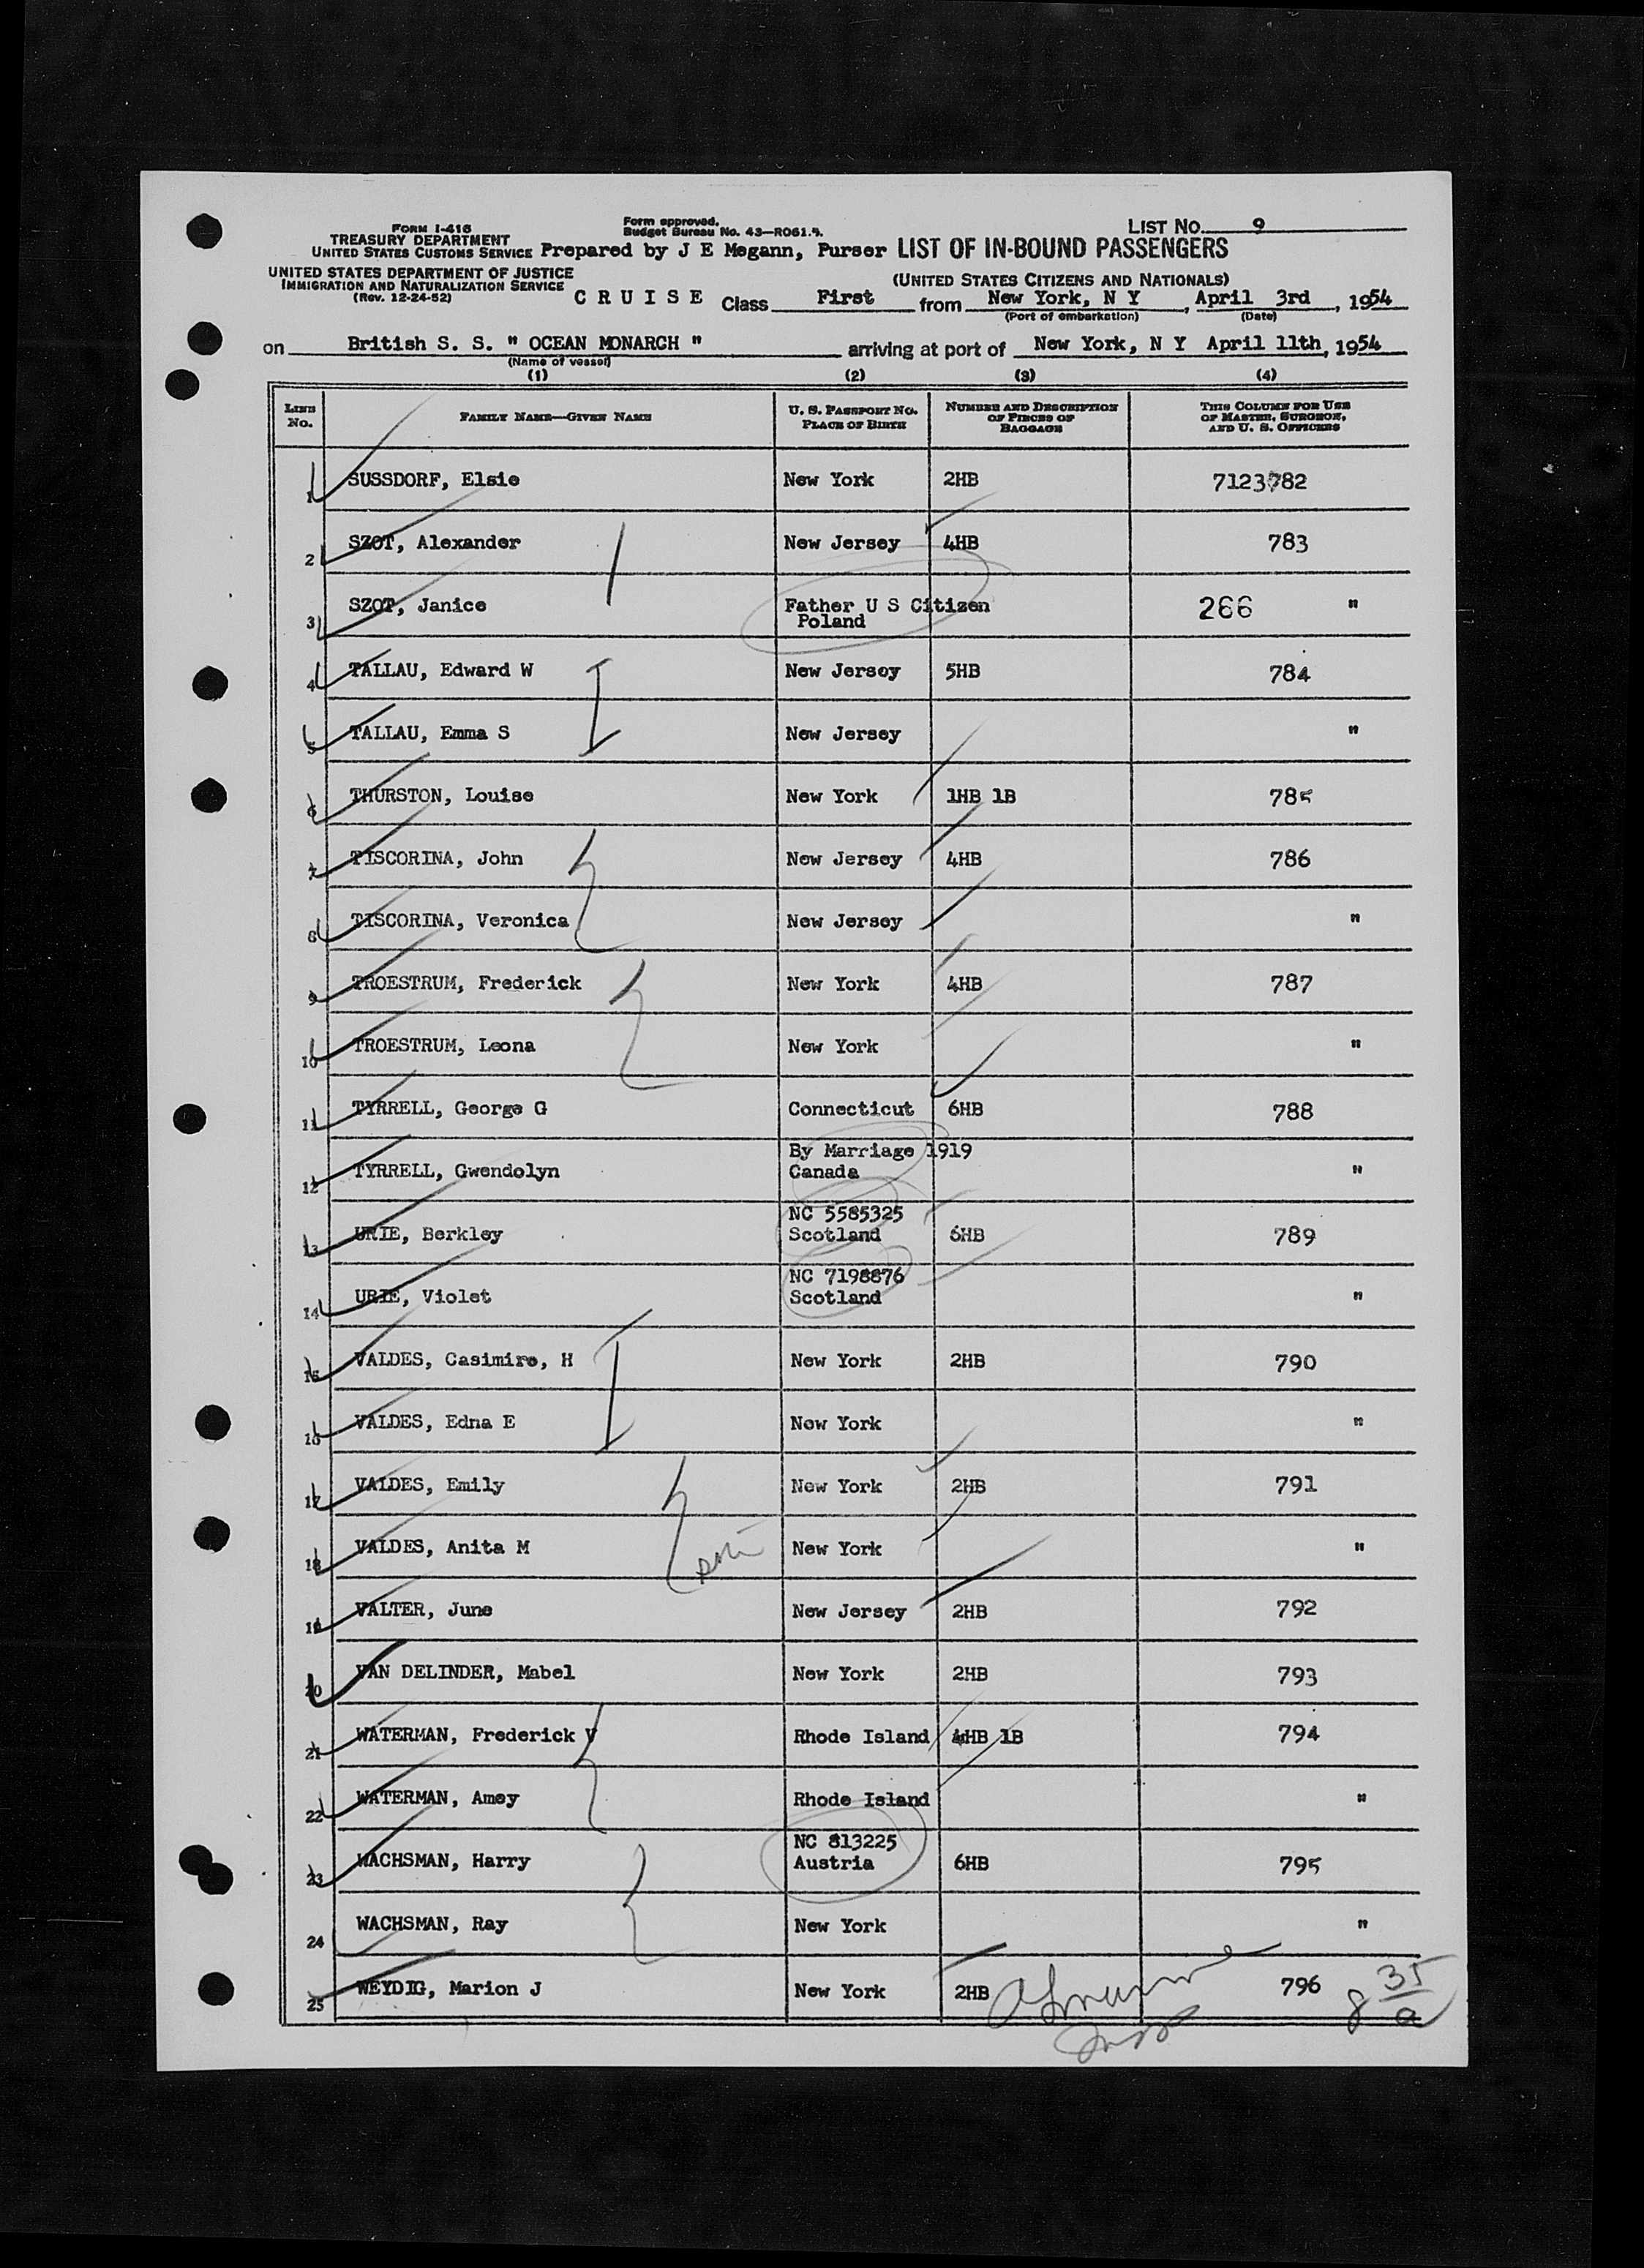 FORM I-416
TREASURY DEPARTMENT
UNITED STATES CUSTOMS SERVICE
UNITED STATES DEPARTMENT OF JUSTICE
IMMIGRATION AND NATURALIZATION SERVICE
(Rev. 12-24-52)
Form approved.
Budget Bureau No. 43—R061.4.
LIST No. 9
Prepared by J E Megann, Purser LIST OF IN-BOUND PASSENGERS
(UNITED STATES CITIZENS AND NATIONALS)
C R U I S E Class First from New York, N Y, April 3rd, 1954
(Port of embarkation) (Date)
on British S. S. " OCEAN MONARCH " arriving at port of New York, N Y April 11th, 1954
(Name of vessel)
(1) (2) (3) (4)
LINE No. FAMILY NAME—GIVEN NAME U. S. PASSPORT NO. PLACE OF BIRTH NUMBER AND DESCRIPTION OF PIECES OF BAGGAGE THIS COLUMN FOR USE OF MASTER, SURGEON, AND U. S. OFFICERS
1 SUSSDORF, Elsie New York 2HB 7123782
2 SZOT, Alexander New Jersey 4HB 783
3 SZOT, Janice Father U S Citizen Poland 266 "
4 TALLAU, Edward W New Jersey 5HB 784
5 TALLAU, Emma S New Jersey "
6 THURSTON, Louise New York 1HB 1B 785
7 TISCORINA, John New Jersey 4HB 786
8 TISCORINA, Veronica New Jersey "
9 TROESTRUM, Frederick New York 4HB 787
10 TROESTRUM, Leona New York "
11 TYRRELL, George G Connecticut 6HB 788
12 TYRRELL, Gwendolyn By Marriage 1919 Canada "
13 URIE, Berkley NC 5585325 Scotland 6HB 789
14 URIE, Violet NC 7198876 Scotland "
15 VALDES, Casimiro, H New York 2HB 790
16 VALDES, Edna E New York "
17 VALDES, Emily New York 2HB 791
18 VALDES, Anita M New York "
19 VALTER, June New Jersey 2HB 792
20 VAN DELINDER, Mabel New York 2HB 793
21 WATERMAN, Frederick V Rhode Island 4HB 1B 794
22 WATERMAN, Amey Rhode Island "
23 WACHSMAN, Harry NC 813225 Austria 6HB 795
24 WACHSMAN, Ray New York "
25 WEYDIG, Marion J New York 2HB 796